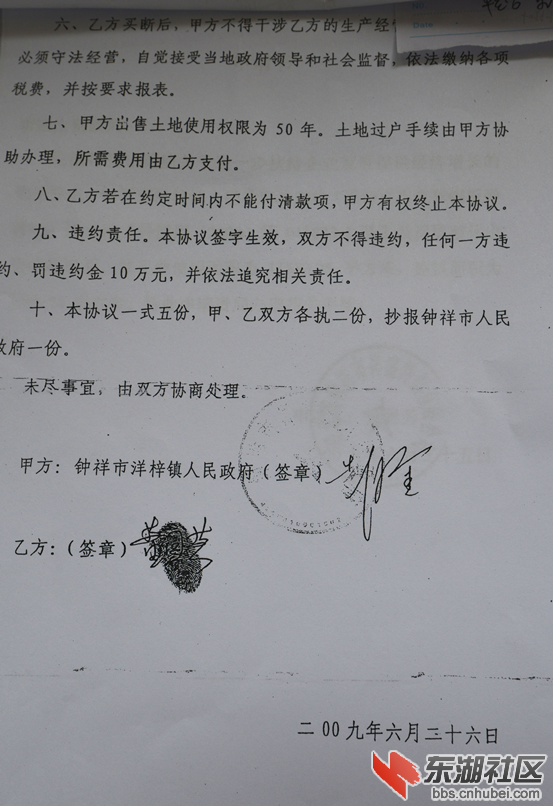 六、乙方买断后，甲方不得干涉乙方的生产经
必须守法经营，自觉接受当地政府领导和社会监督，依法缴纳各项
税费，并按要求报表。
七、甲方出售土地使用权限为 50 年。土地过户手续由甲方协
助办理，所需费用由乙方支付。
八、乙方若在约定时间内不能付清款项，甲方有权终止本协议。
九、违约责任。本协议签字生效，双方不得违约，任何一方违
约、罚违约金 10 万元，并依法追究相关责任。
十、本协议一式五份，甲、乙双方各执二份，抄报钟祥市人民
政府一份。
未尽事宜，由双方协商处理。
甲方：钟祥市洋梓镇人民政府（签章）
乙方：（签章）
二00九年六月二十六日
Date
东湖社区
bbs.cnhubei.com